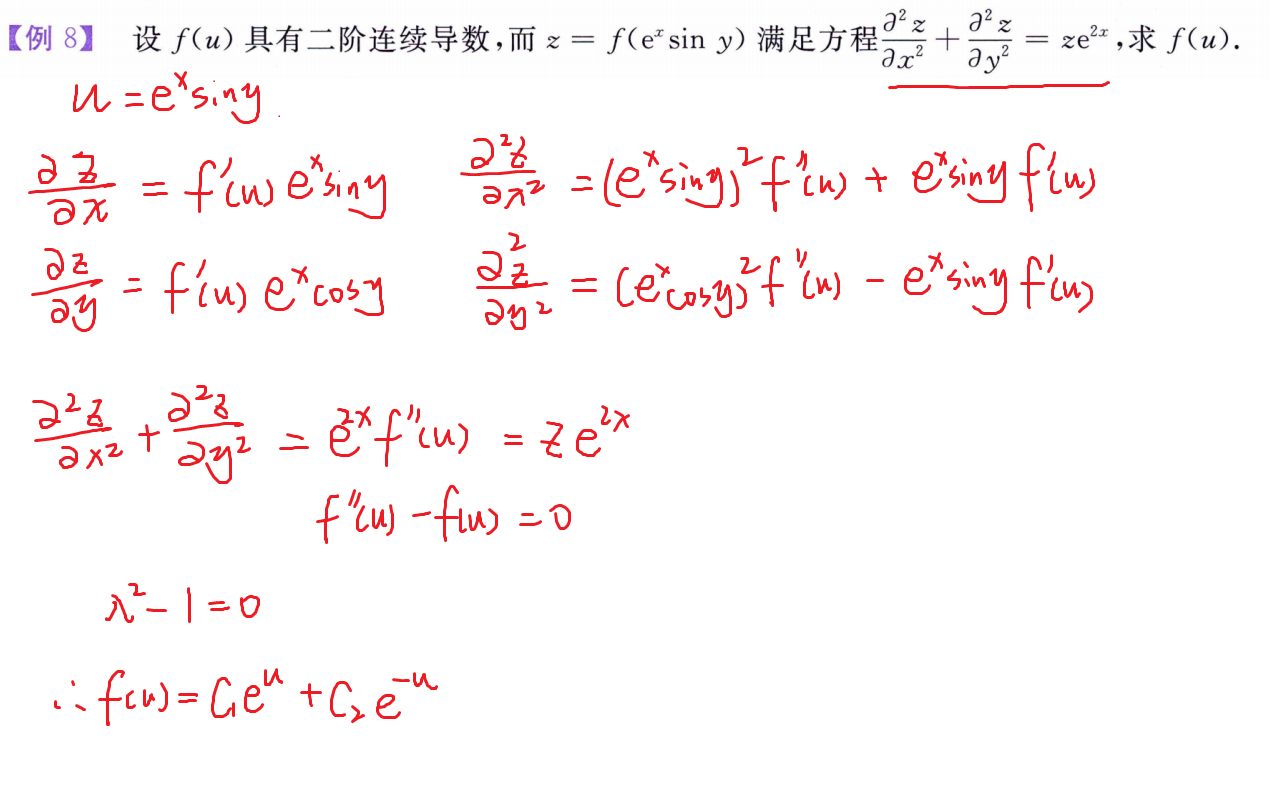 【例 8】 设 f(u) 具有二阶连续导数,而 z = f(eˣ sin y) 满足方程 ∂²z/∂x² + ∂²z/∂y² = ze²ˣ,求 f(u).
u = eˣ sin y
∂z/∂x = f′(u) eˣ sin y    ∂²z/∂x² = (eˣ sin y)² f″(u) + eˣ sin y f′(u)
∂z/∂y = f′(u) eˣ cos y    ∂²z/∂y² = (eˣ cos y)² f″(u) − eˣ sin y f′(u)
∂²z/∂x² + ∂²z/∂y² = e²ˣ f″(u) = z e²ˣ
f″(u) − f(u) = 0
λ² − 1 = 0
∴ f(u) = C₁eᵘ + C₂e⁻ᵘ